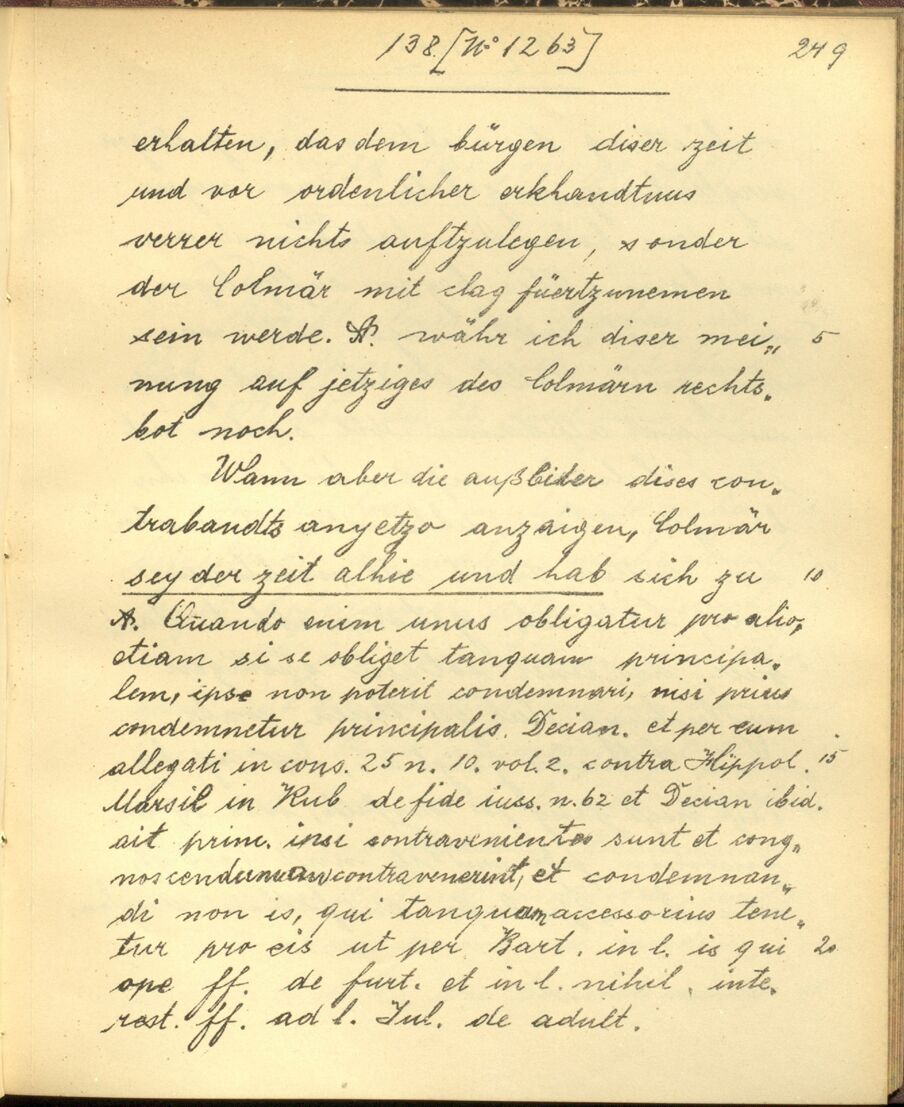 138. [No 1263] 249
erhalten, das dem bürgen diser zeit
und vor ordenlicher erkhandtnus
verrer nichts auftzulegen, sonder
der Colmär mit clag füertzunemen
sein werde. A. währ ich diser mei„ 5
nung auf jetziges des Colmärn rechts„
bot noch.
Wann aber die außbider dises con„
trabandts anyetzo anzaigen, Colmär
sey der zeit alhie und hab sich zu 10
A. Quando enim unus obligatur pro alio,
etiam si se obliget tanquam principa„
lem, ipse non poterit condemnari, nisi prius
condemnetur principalis. Decian. et per eum
allegati in cons. 25 n. 10. vol. 2. contra Hippol. 15
Marsil in Rub de fide iuss. n. 62 et Decian ibid.
ait princ. ipsi contravenientes sunt et cog„
noscendum an contravenerint, et condemnan„
di non is, qui tanquam accessorius tene„
tur pro eis ut per Bart. in l. is qui 20
ope ff. de furt. et in l. nihil inte„
rest. ff. ad l. Jul. de adult.